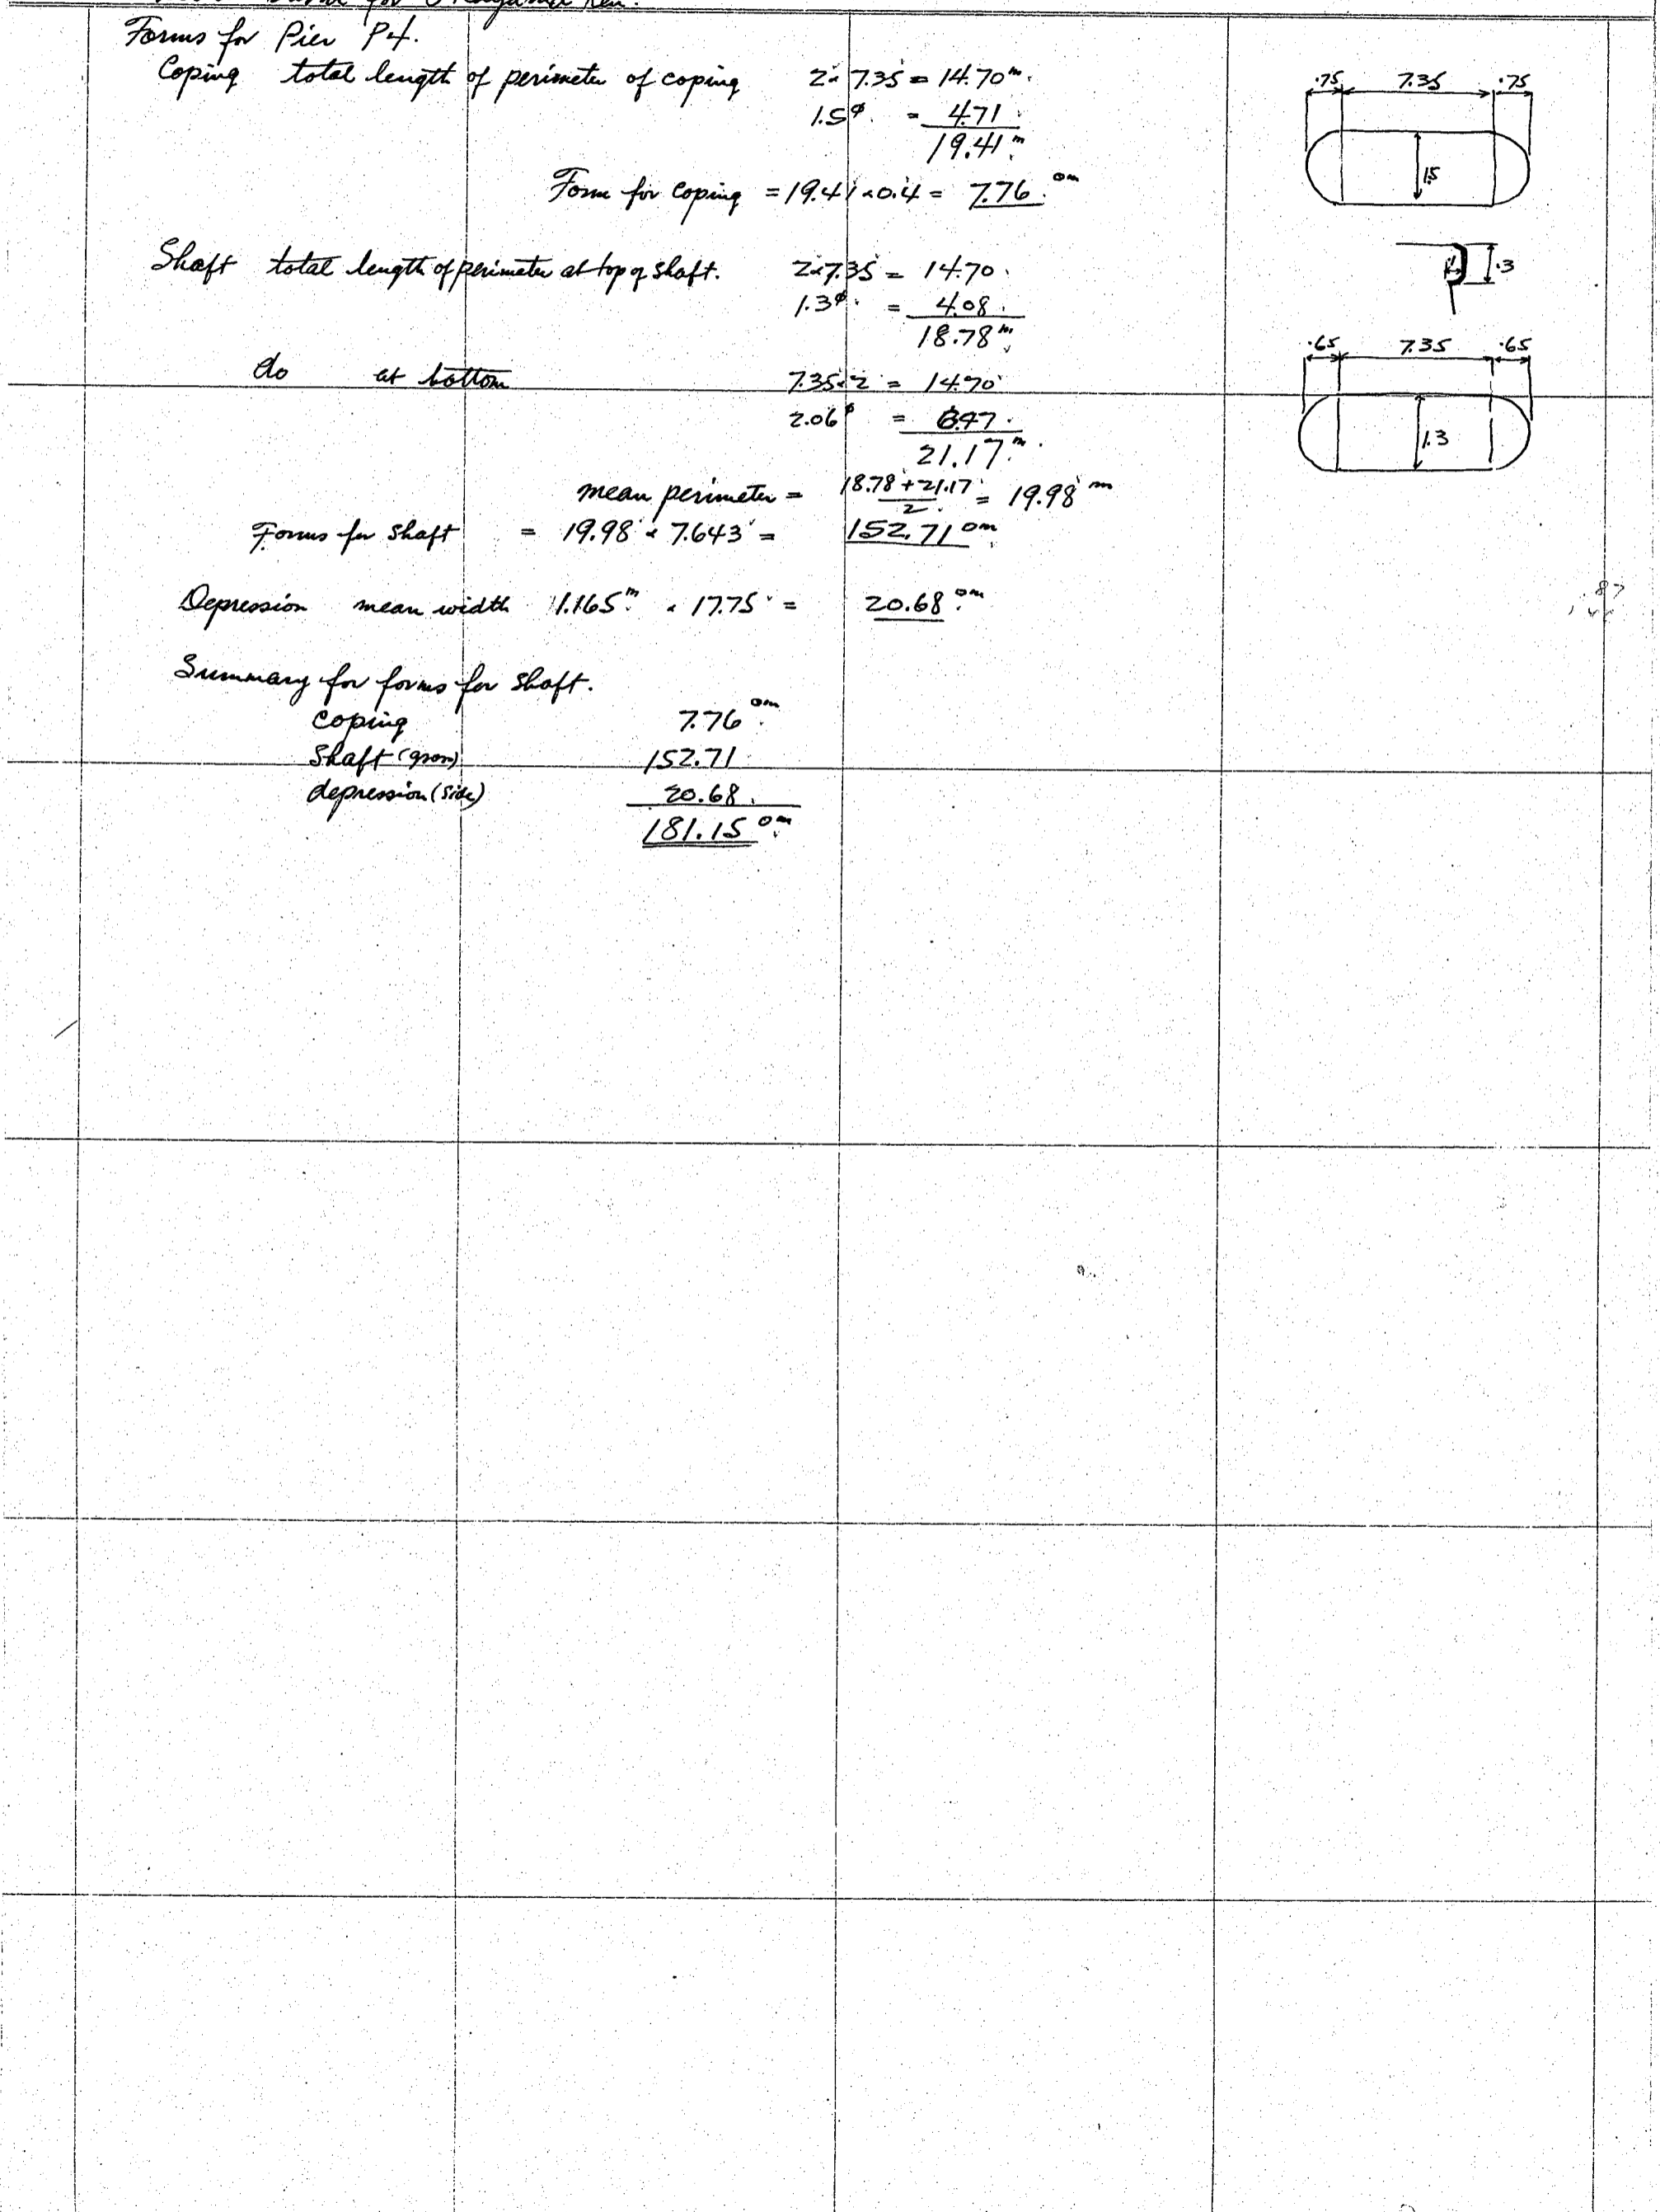 for Okayama Ken.
Forms for Pier P4.
Coping total length of perimeter of coping 2 × 7.35 = 14.70 m.
1.5φ. = 4.71
19.41 m.
Form for coping = 19.41 × 0.4 = 7.76 □m
Shaft total length of perimeter at top of shaft. 2×7.35 = 14.70.
1.3φ. = 4.08.
18.78 m.
do at bottom 7.35×2 = 14.70
2.06φ = 6.47.
21.17 m.
mean perimeter = (18.78 + 21.17)/2 = 19.98 m
Forms for shaft = 19.98 × 7.643 = 152.71 □m.
Depression mean width 1.165 m. × 17.75 = 20.68 □m.
Summary for forms for shaft.
coping 7.76 □m.
Shaft (gross) 152.71
depression (side) 20.68.
181.15 □m.
.75 7.35 .75
1.5
.3
.65 7.35 .65
1.3